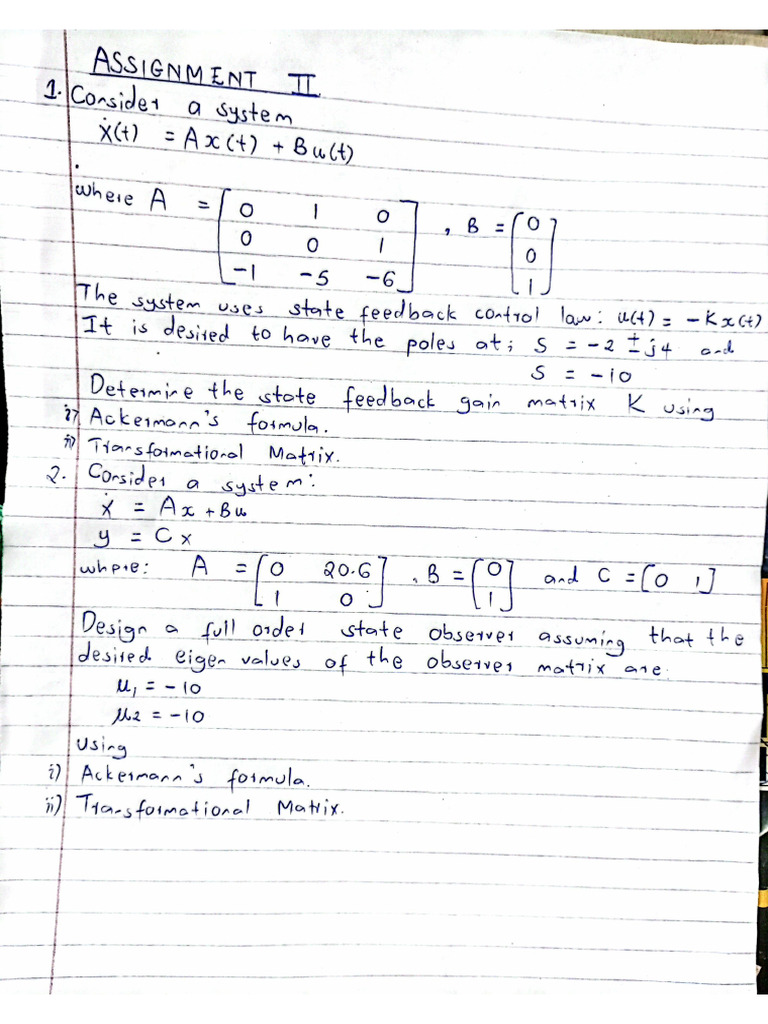 ASSIGNMENT II
1. Consider a system
ẋ(t) = Ax(t) + Bu(t)
where A = [0 1 0 , B = [0
0 0 1 0
-1 -5 -6] 1]
The system uses state feedback control law: u(t) = -Kx(t)
It is desired to have the poles at; S = -2 ± j4 and
S = -10
Determine the state feedback gain matrix K using
i) Ackermann's formula.
ii) Transformational Matrix.
2. Consider a system:
ẋ = Ax + Bu
y = Cx
where: A = [0 20.6 , B = [0 and C = [0 1]
1 0] 1]
Design a full order state observer assuming that the
desired eigen values of the observer matrix are:
μ1 = -10
μ2 = -10
Using
i) Ackermann's formula.
ii) Transformational Matrix.